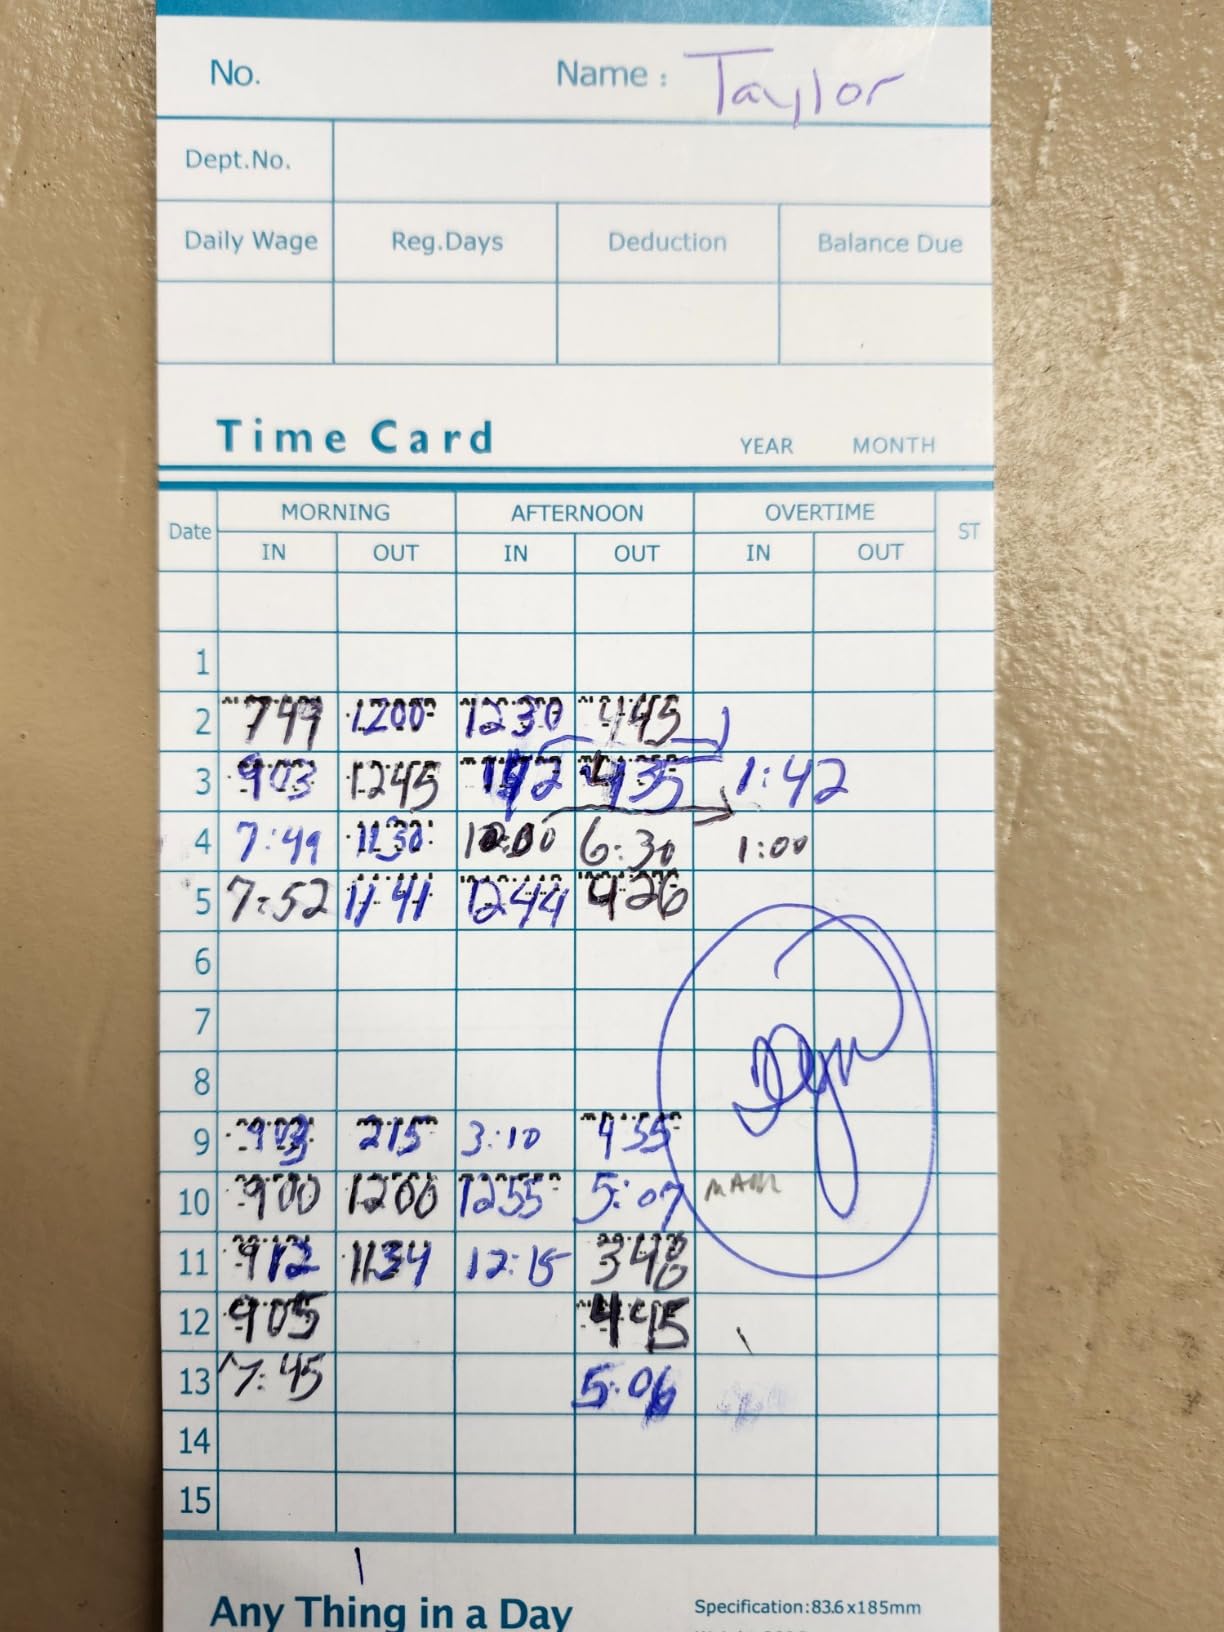 No. Name : Taylor
Dept.No.
Daily Wage Reg.Days Deduction Balance Due
Time Card YEAR MONTH
Date MORNING AFTERNOON OVERTIME ST
IN OUT IN OUT IN OUT
1
2 749 1200 1230 445
3 903 1245 1:42
4 7:49 1130 6:30 1:00
5 7:52 1141 1244 426
6
7
8
9 903 215 3:10 455
10 900 1200 1255 5:07
11 912 1134 12:15
12 905 445
13 7:45 5:06
14
15
Any Thing in a Day Specification:83.6x185mm